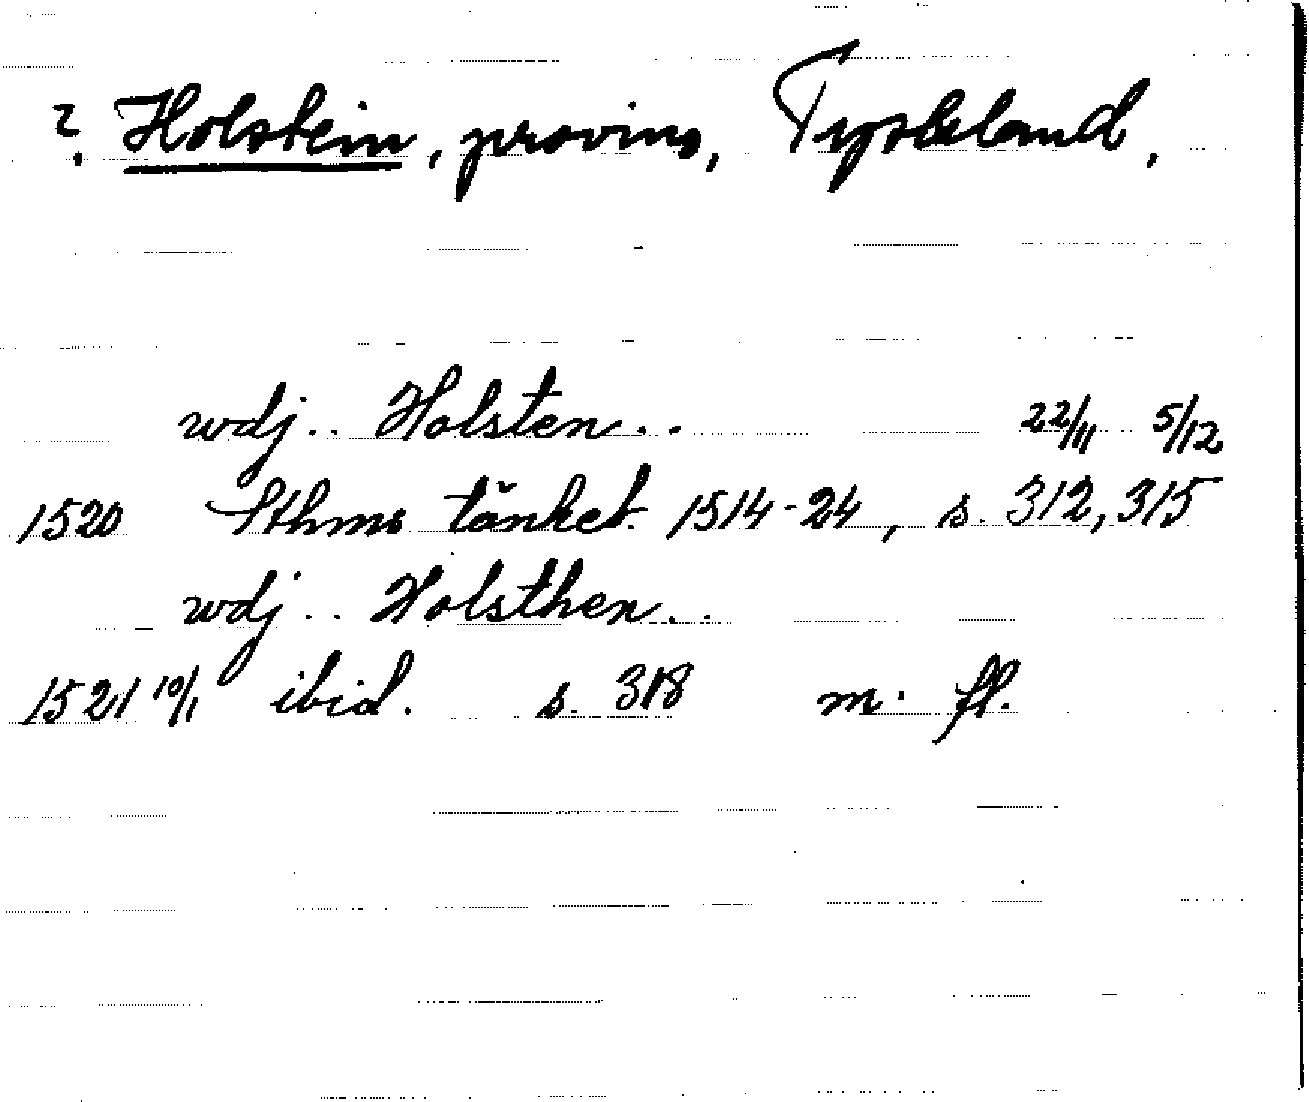 ?. Holstein, provins, Tyskland.
wdj.. Holsten.. 22/11 5/12
1520 Sthms tänkeb. 1514-24, s. 312, 315
wdj.. Holsthen..
1521 10/1 ibid. s. 318 m. fl.